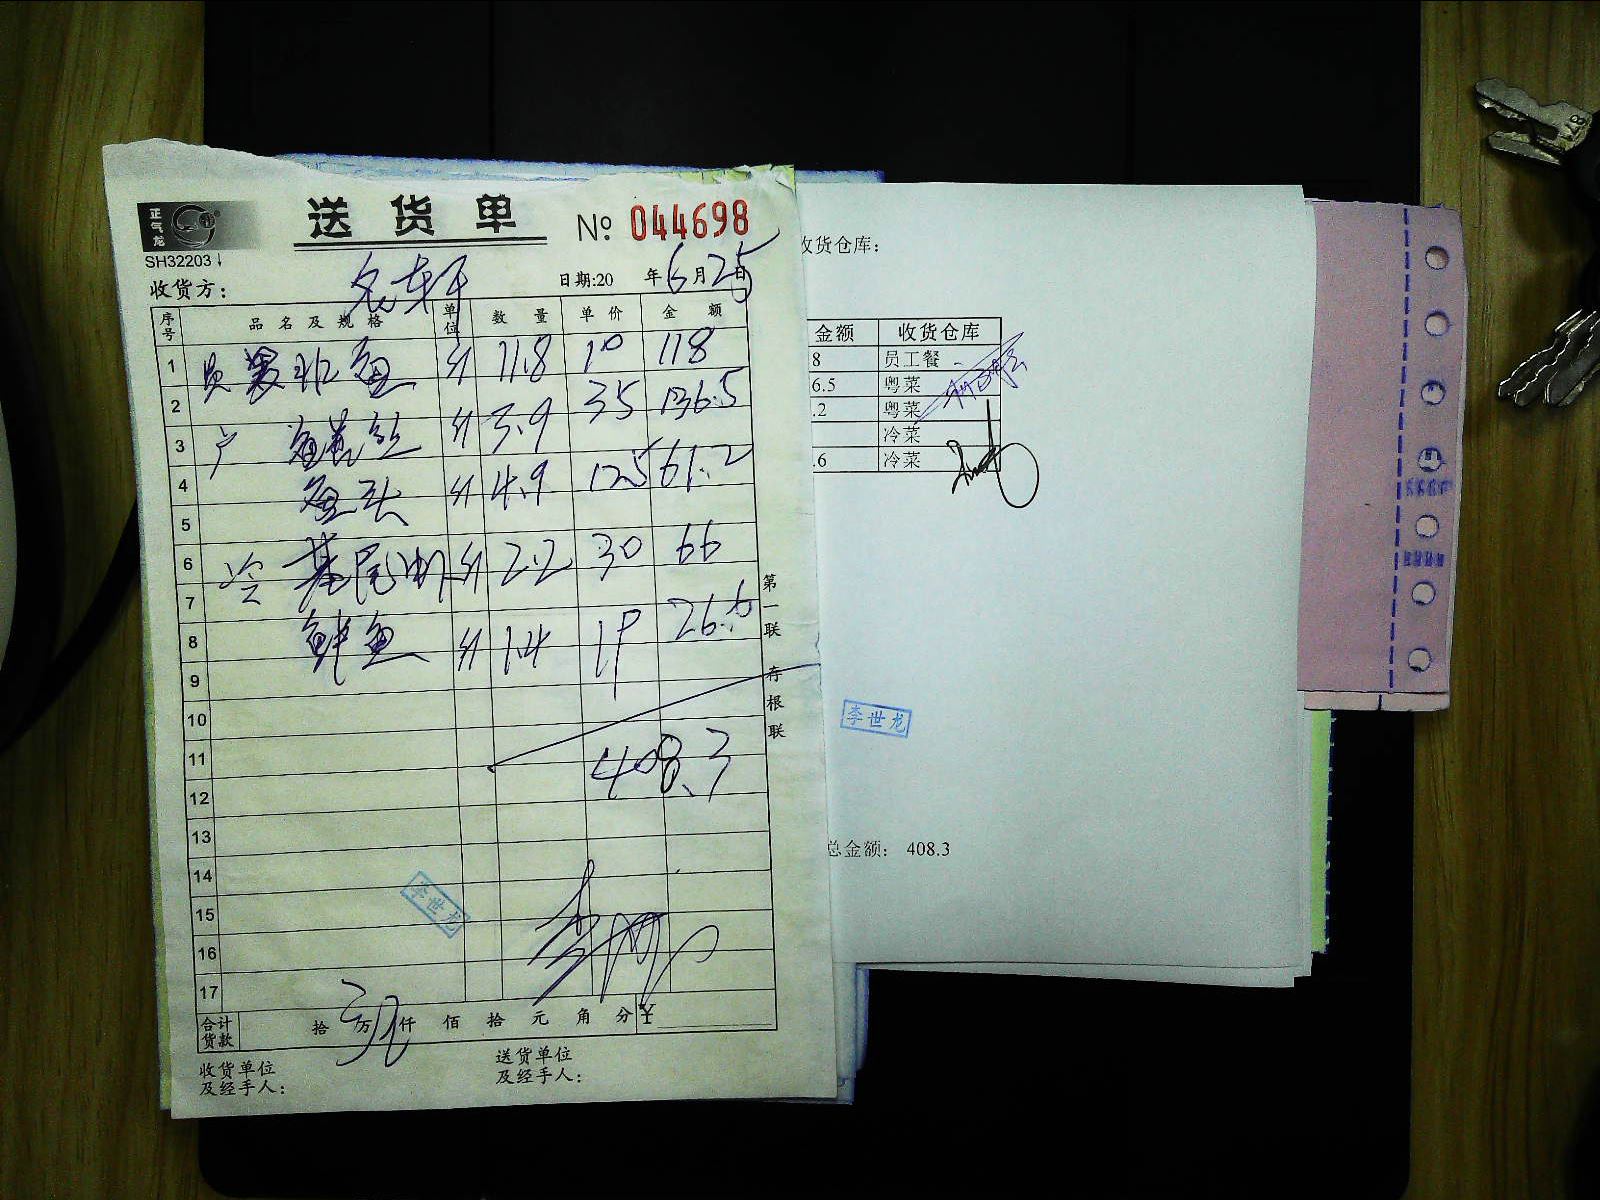 正气龙
送货单 № 044698
SH32203
收货方： 名轩 日期:20 年6月25日
序号 品名及规格 单位 数量 单价 金额
1 员 巴鱼 斤 11.8 10 118
2
3 广 斤 3.9 35 136.5
4 鱼头 斤 4.9 12.5 61.2
5
6 冷 基尾虾 斤 2.2 30 66
7
8 鲜鱼 斤 1.4 19 26.6
9
10
11
12 408.3
13
14
15
16
17
李世龙
合计货款 拾万仟佰拾元角分 ¥
收货单位
及经手人：
送货单位
及经手人：
第一联 存根联
收货仓库：
金额 收货仓库
8 员工餐
6.5 粤菜
.2 粤菜
冷菜
.6 冷菜
李世龙
总金额： 408.3